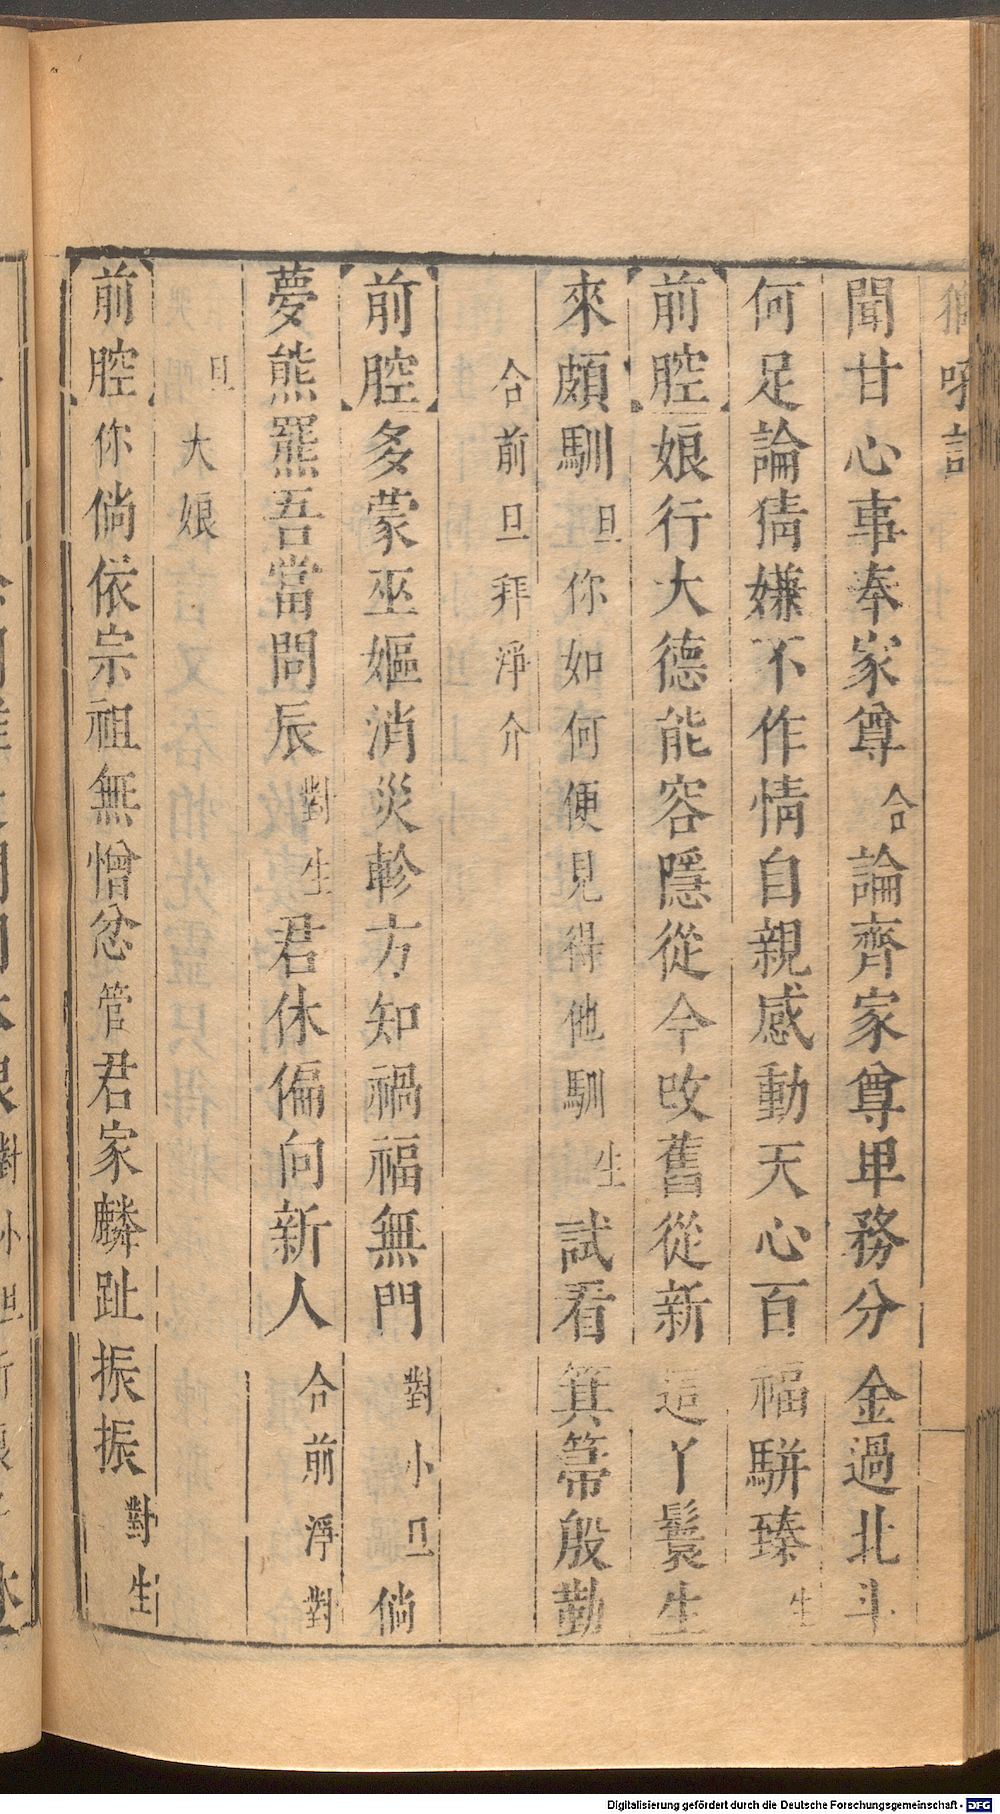 聞甘心事奉家尊合論齊家尊卑務分金過北斗
何足論猜嫌不作情自親感動天心百福駢臻生
前腔娘行大德能容隱從今改舊從新這丫鬟生
來頗馴旦你如何便見得他馴生試看箕箒殷勤
合前旦拜淨介
前腔多蒙巫嫗消災軫方知禍福無門對小旦倘
夢熊羆吾當問辰對生君休偏向新人合前淨對
旦大娘
前腔你倘依宗祖無憎忿管君家麟趾振振對生
Digitalisierung gefördert durch die Deutsche Forschungsgemeinschaft - DFG